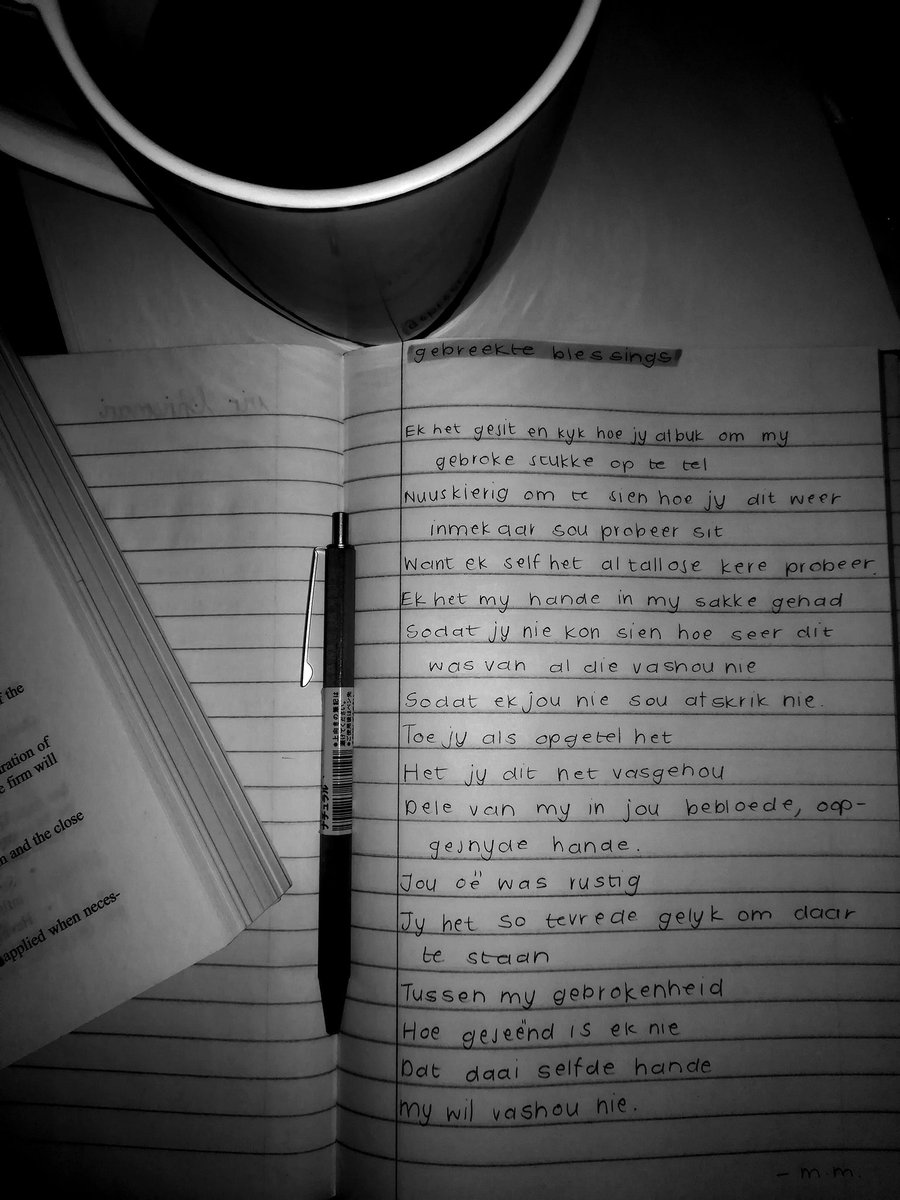 gebreekte blessings
Ek het gesit en kyk hoe jy afbuk om my
gebroke stukke op te tel
Nuuskierig om te sien hoe jy dit weer
inmekaar sou probeer sit
Want ek self het al tallose kere probeer.
Ek het my hande in my sakke gehad
Sodat jy nie kon sien hoe seer dit
was van al die vashou nie
Sodat ek jou nie sou afskrik nie.
Toe jy als opgetel het
Het jy dit net vasgehou
Dele van my in jou bebloede, oop-
gesnyde hande.
Jou oë was rustig
Jy het so tevrede gelyk om daar
te staan
Tussen my gebrokenheid
Hoe geseënd is ek nie
Dat daai selfde hande
my wil vashou nie.
- m.m.
f the
ration of
e firm will
n and the close
applied when neces-
ナチュラル